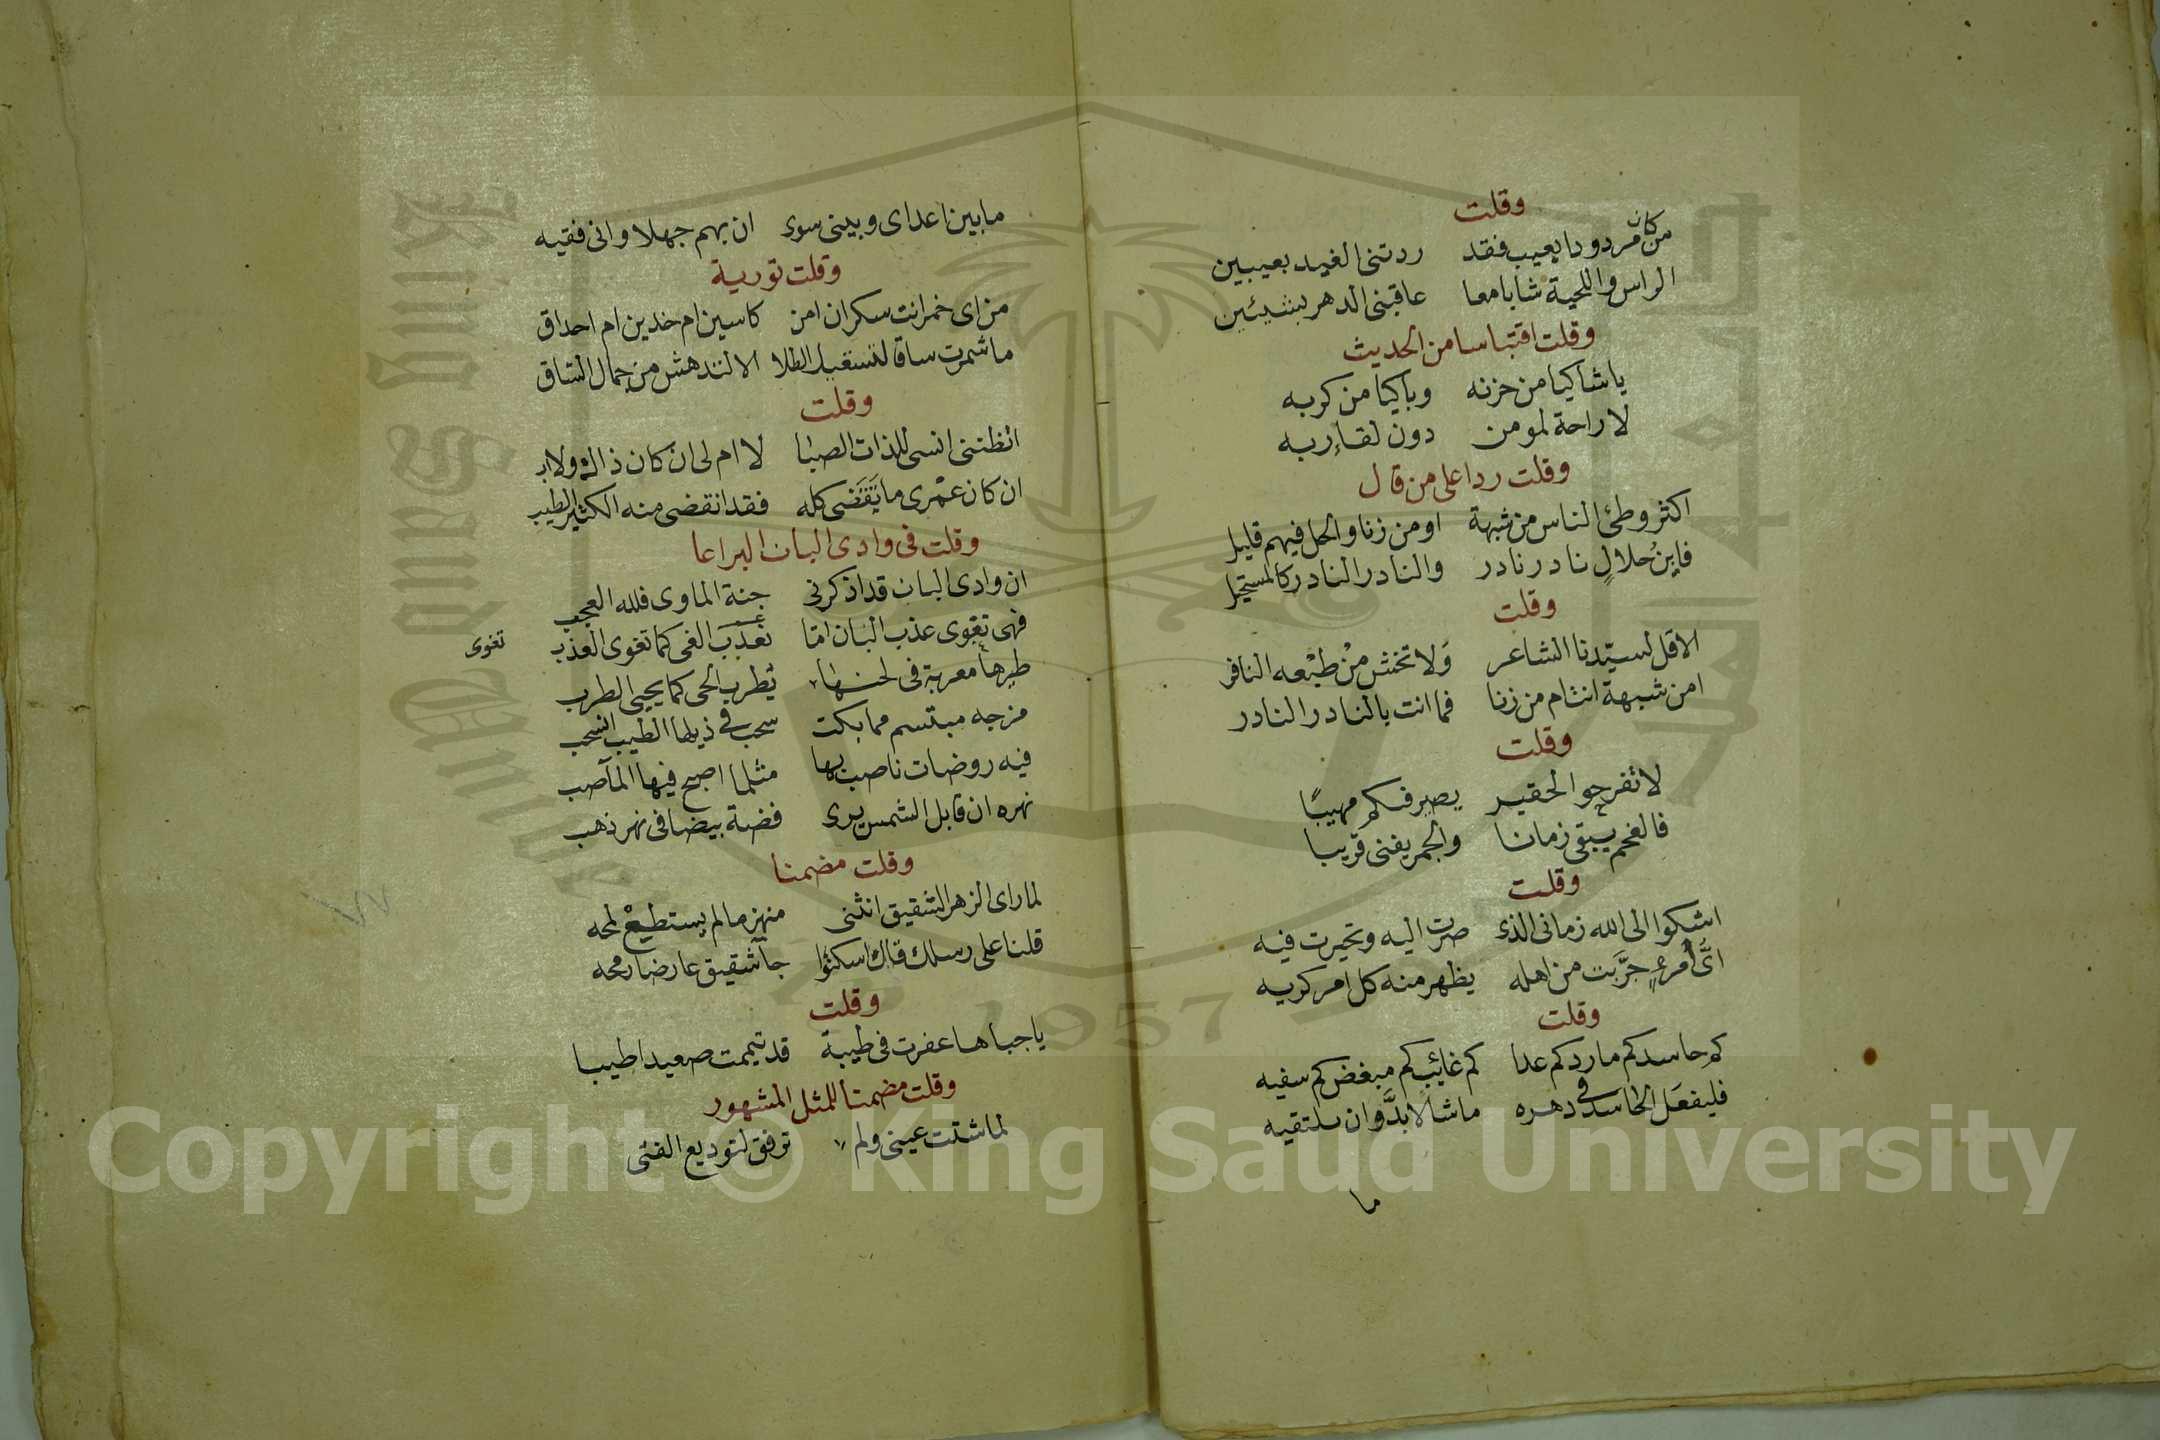 وقلت
من كان مردودا بعيب فقد ردتني الغيد بعيبين
الراس واللحية شابا معا عاقبني الدهر بشيئين
وقلت اقتباسا من الحديث
يا شاكيا من حزنه وباكيا من كربه
لا راحة لمومن دون لقاء ربه
وقلت ردا على من قال
اكثر وطئ الناس من شبهة او من زنا والحل فيهم قليل
فابن حلال نادر نادر والنادر النادر كالمستحيل
وقلت
الا قل لسيدنا الشاعر ولا تخش من طبعه النافر
امن شبهة انت ام من زنا فما انت بالنادر النادر
وقلت
لا تفرجوا الحقير يصير فيكم مهيبا
فالفحم يبقى زمانا والجمر يفنى قريبا
وقلت
اشكوا الى الله زماني الذي صرت اليه وتحيرت فيه
اي امرء جربت من اهله يظهر منه كل امر كريه
وقلت
كم حاسدكم ماردكم عدا كم غائبكم مبغضكم سفيه
فليفعل الحاسد في دهره ما شا لا بد وان يلتقيه
ما
ما بين اعداي وبيني سوى ان بهم جهلا واني فقيه
وقلت تورية
من اي خمر انت سكران امن كاسين ام خدين ام احداق
ما شمرت ساقا لتستقبل الطلا الا لتدهش من جمال الساق
وقلت
اتظنني انسى للذات الصبا لا ام لي ان كان ذاك ولا اب
ان كان عمري ما تقضى كله فقد انقضى منه الكثير الطيب
وقلت في وادي البان البراعا
ان وادي البان قد اذكرني جنة الماوى فلله العجب
فهي تقوى عذب البان اما تعذب الغى كما تغوى العذب
تغوى
طيرها معربة في لحنها تطرب الحى كما يحيي الطرب
مزجه مبتسم مما بكت سحب في ذيلها الطيب انسحب
فيه روضات ناصب بها مثلما اصبح فيها الماصب
نهره ان قابل الشمس يرى فضة بيضا في نهر ذهب
وقلت مضمنا
لما راى الزهر الشقيق انثنى منهزما لم يستطيع لمحه
قلنا على رسلك قال اسكتوا جا شقيق عارضا رمحه
وقلت
يا جباها عفرت في طيبة قد تيممت صعيدا طيبا
وقلت مضمنا للمثل المشهور
لما شتت عيني ولم توفق لتوديع الفتى
Copyright © King Saud University
King Saud University
1957